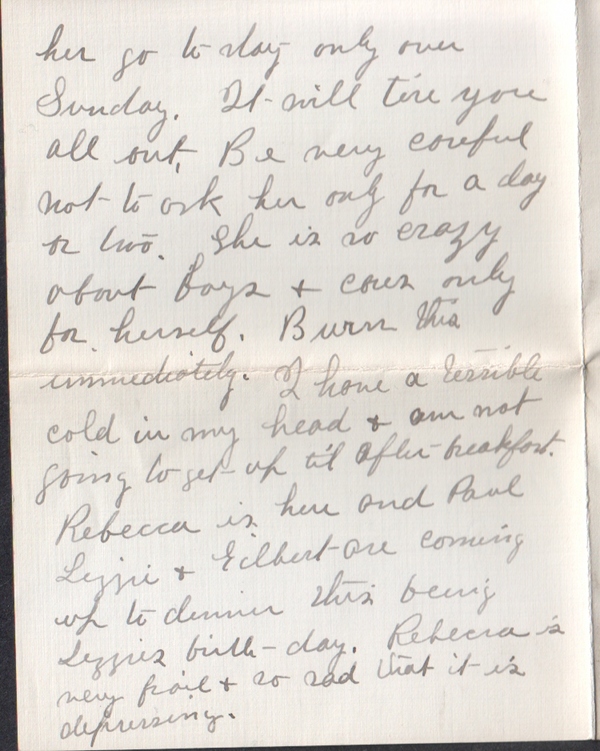 her go to stay only over
Sunday. It will tire you
all out. Be very careful
not to ask her only for a day
or two. She is so crazy
about boys & cares only
for herself. Burn this
immediately. I have a terrible
cold in my head & am not
going to get up til after breakfast.
Rebecca is here and Paul
Lizzie & Gilbert are coming
up to dinner this being
Lizzies birth-day. Rebecca is
very frail & so sad that it is
depressing.